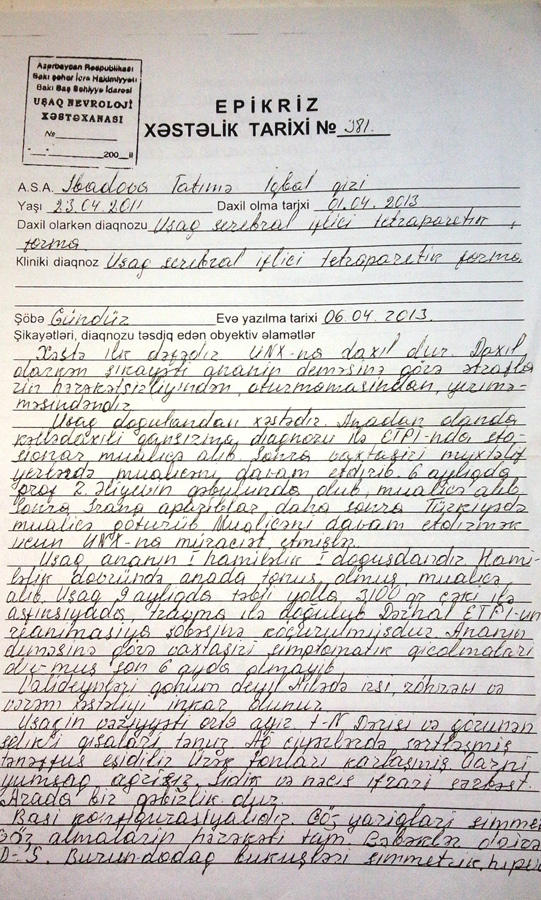 Azərbaycan Respublikası
Bakı şəhər İcra Hakimiyyəti
Bakı Baş Səhiyyə İdarəsi
UŞAQ NEVROLOJİ
XƏSTƏXANASI
№
200 il
EPİKRİZ
XƏSTƏLİK TARİXİ № 381.
A.S.A. İbadova Fatimə İqbal qizi
Yaşı 23.04.2011 Daxil olma tarixi 01.04.2013
Daxil olarkən diaqnozu Uşaq serebral iflici tetraparetik
forma.
Kliniki diaqnoz Uşaq serebral iflici tetraparetik forma
Şöbə Gündüz Evə yazılma tarixi 06.04.2013.
Şikayətləri, diaqnozu təsdiq edən obyektiv əlamətlər
Xəstə ilk dəfədir UNX-na daxil olur. Daxil
olarkən şikayəti ananin deməsinə görə ətrafla
rin hərəkətsizliyindən, oturmamasından, yerimə-
məsindəndir.
Uşaq doğulandan xəstədir. Anadan olanda
kəllədaxili qansızma diaqnozu ilə ETPİ-nda sta-
sionar mualicə alıb. Sonra vaxtaşiri muxtəlif
yerlərdə mualicəni davam etdirib. 6 ayliqda
prof. Z. Əliyevin qəbulunda olub, mualicə alıb,
Sonra İrana aparıblar, daha sonra Türkiyədə
mualicə götürüb. Mualicəni davam etdirmək
ucun UNX-na müraciət etmişlər.
Uşaq ananın I hamiləlik I doguşdandir. Hami-
ləlik dövründə anada tonus olmuş, mualicə
alıb. Uşaq 9 ayliqda təbii yolla 3100 qr çəki ilə
asfiksiyada, travma ilə doğulub. Dərhal ETPİ-un
reanimasiya şöbəsinə köçürülmüşdür. Ananin
deməsinə görə vaxtaşiri simptomatik qicolmaları
olmuş son 6 ayda olmayıb.
Valideynləri qohum deyil. Ailədə irsi, zöhrəvi və
vərəm xəstəliyi inkar olunur.
Uşagin vəziyyəti orta ağır. t-N Dərisi və görünən
selikli qişaları təmiz. Ağ ciyərlərdə sərtləşmiş
tənəffüs eşidilir. Ürək tonları karlaşmış. Qarni
yumşaq ağrisiz. Sidik və nəcis ifrazi sərbəst.
Arada bir qəbizlik olur.
Başi konfiqurasiyalidir. Göz yarıqlari simme
Göz almalarin hərəkəti tam. Bəbəklər dairə
D=S. Burun-dodaq bukuşləri simmetrik, hiper